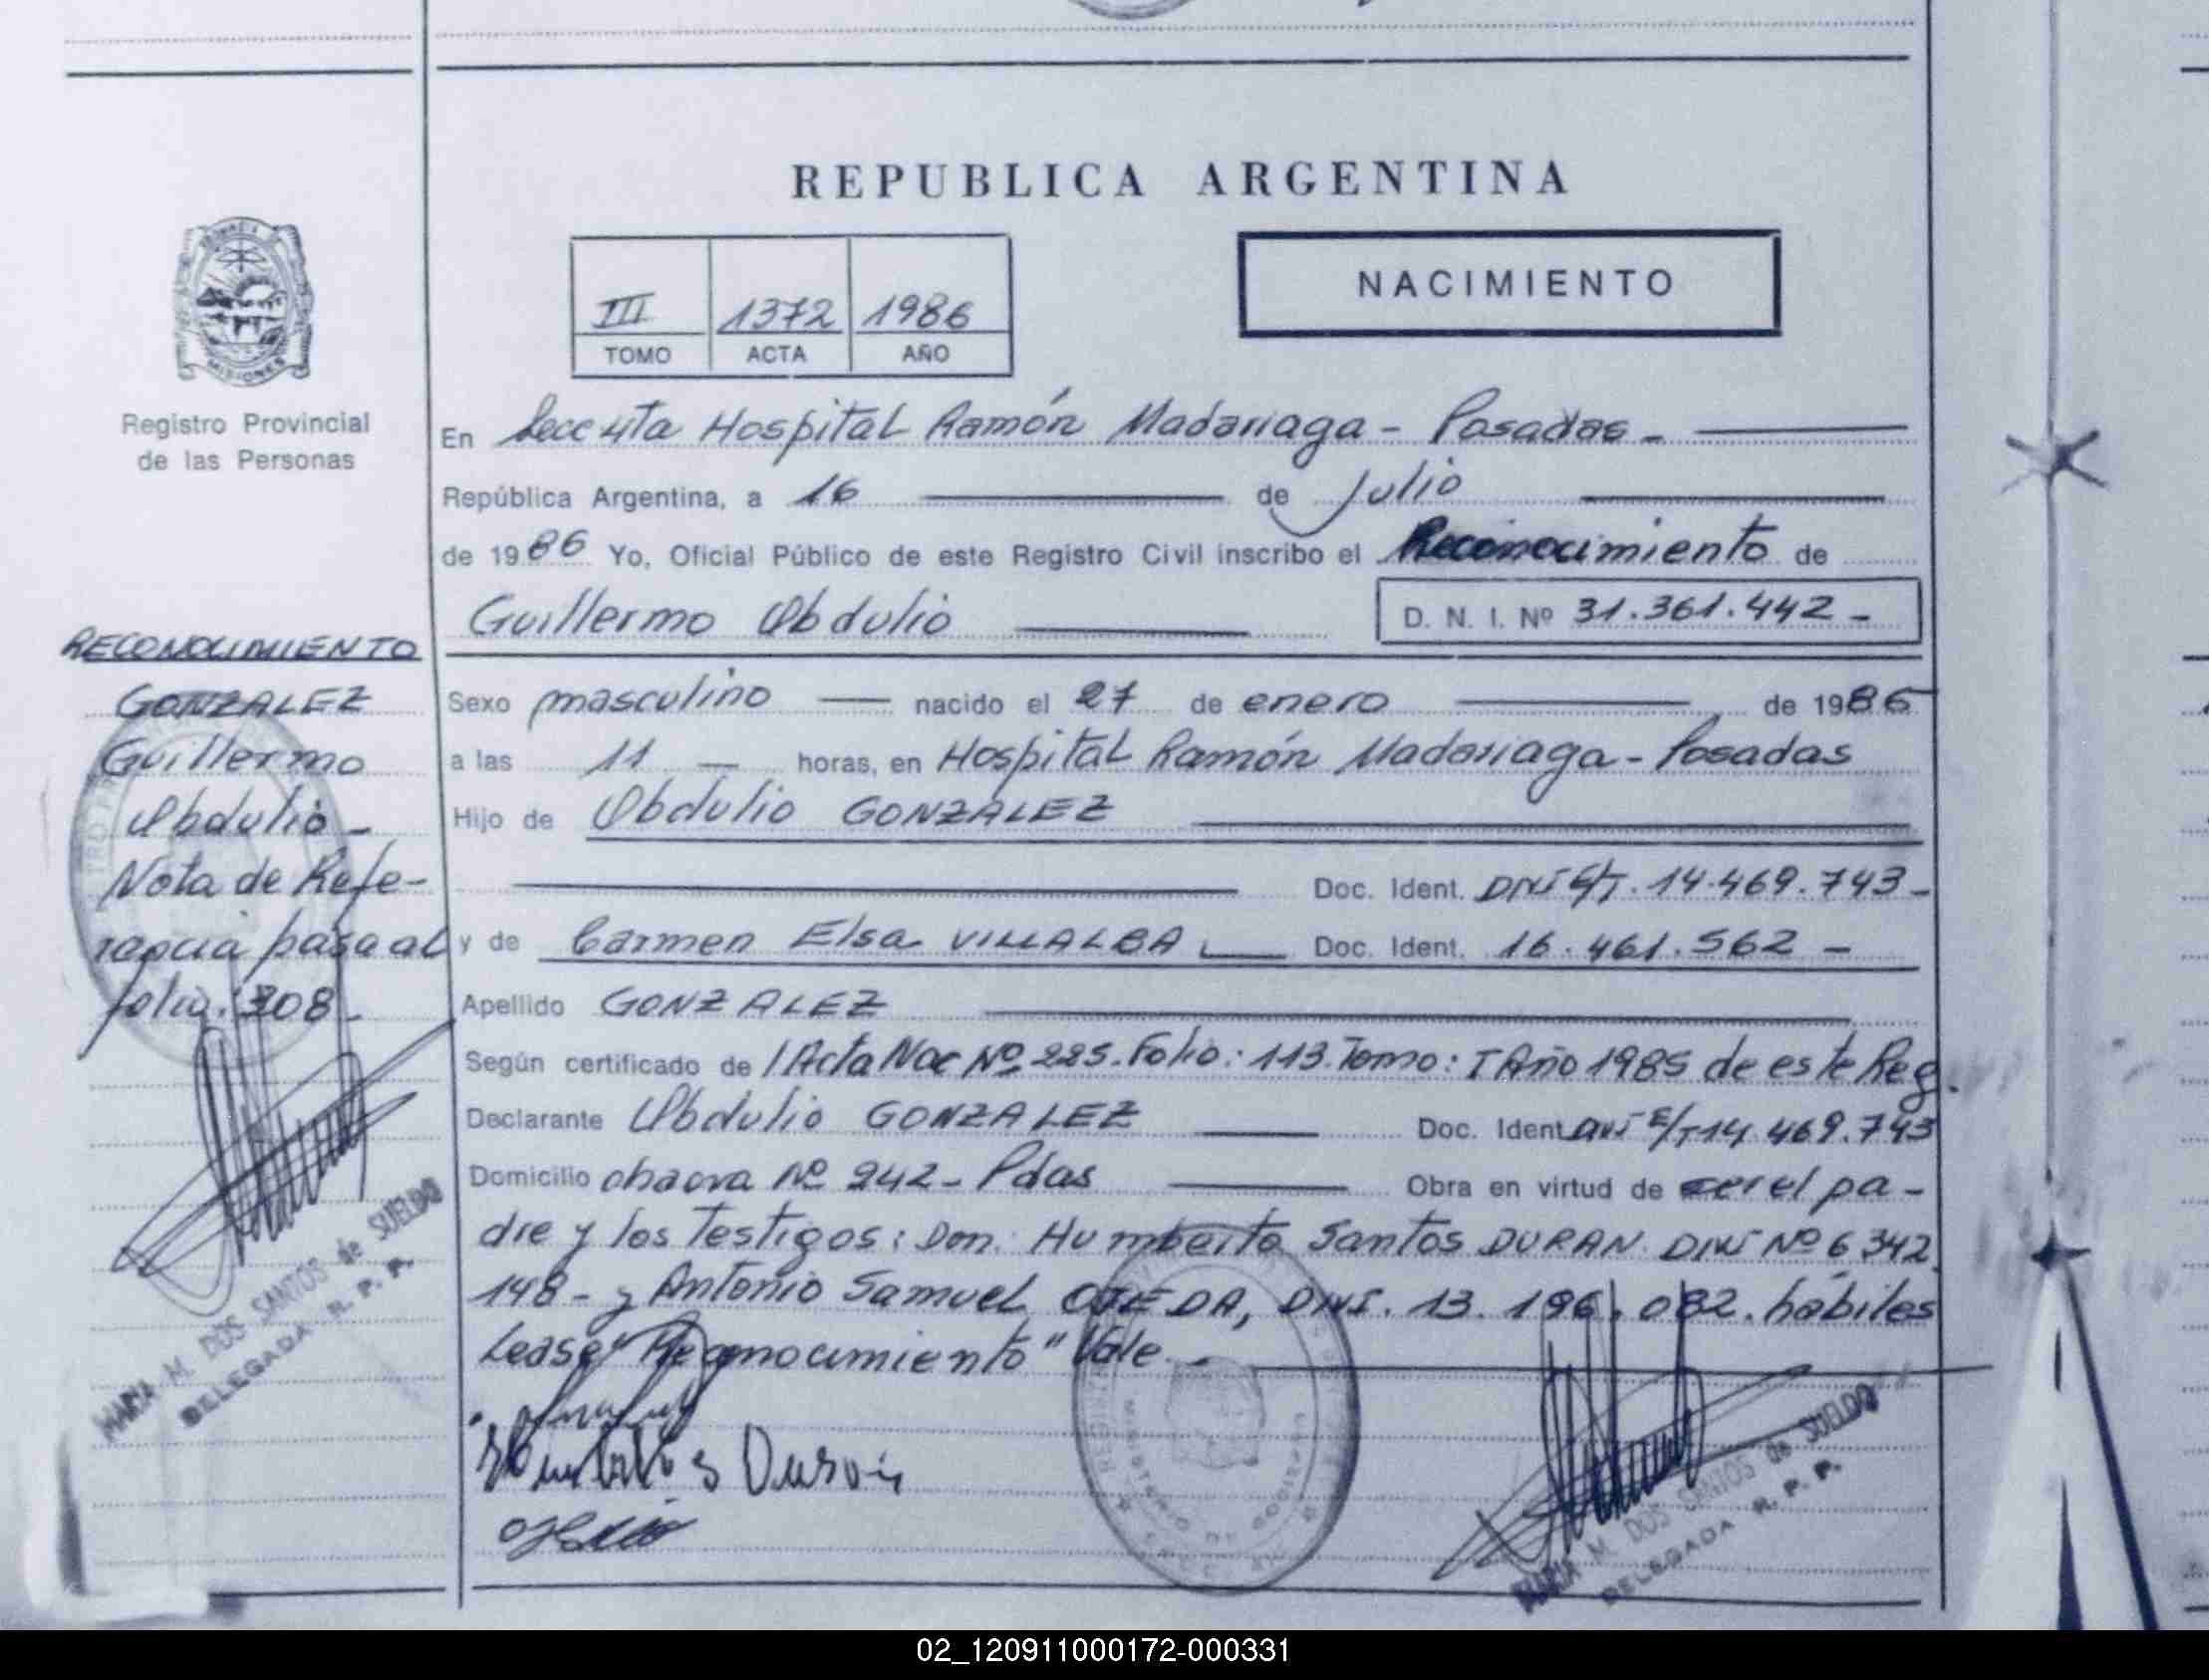 REPUBLICA ARGENTINA
NACIMIENTO
III 1372 1986
TOMO ACTA AÑO
MISIONES
Registro Provincial
de las Personas
En Secc 4ta Hospital Ramón Madariaga - Posadas -
República Argentina, a 16 de Julio
de 1986 Yo, Oficial Público de este Registro Civil inscribo el Reconocimiento de
Guillermo Obdulio D. N. I. Nº 31.361.442 -
RECONOCIMIENTO
GONZALEZ
Guillermo
Obdulio -
Nota de Refe-
rencia pasa al
folio: 308 -
MARIA M. DOS SANTOS de SUELDO
DELEGADA R. P. P.
Sexo masculino nacido el 27 de enero de 1985
a las 11 horas, en Hospital Ramón Madariaga - Posadas
Hijo de Obdulio GONZALEZ
Doc. Ident. DNI E/T. 14.469.743 -
y de Carmen Elsa VILLALBA Doc. Ident. 16.461.562 -
Apellido GONZALEZ
Según certificado de / Acta Nac Nº 225. Folio: 113. Tomo: I Año 1985 de este Reg.
Declarante Obdulio GONZALEZ Doc. Ident DNI E/T 14.469.743
Domicilio chacra Nº 242 - Pdas Obra en virtud de ser el pa-
dre y los Testigos: Don. Humberto Santos DURAN. DNI Nº 6 342
148 - y Antonio Samuel OJEDA, DNI. 13.196.082. hábiles
Lease "Reconocimiento" Vale -
MARIA M. DOS SANTOS de SUELDO
DELEGADA R. P. P.
02_120911000172-000331